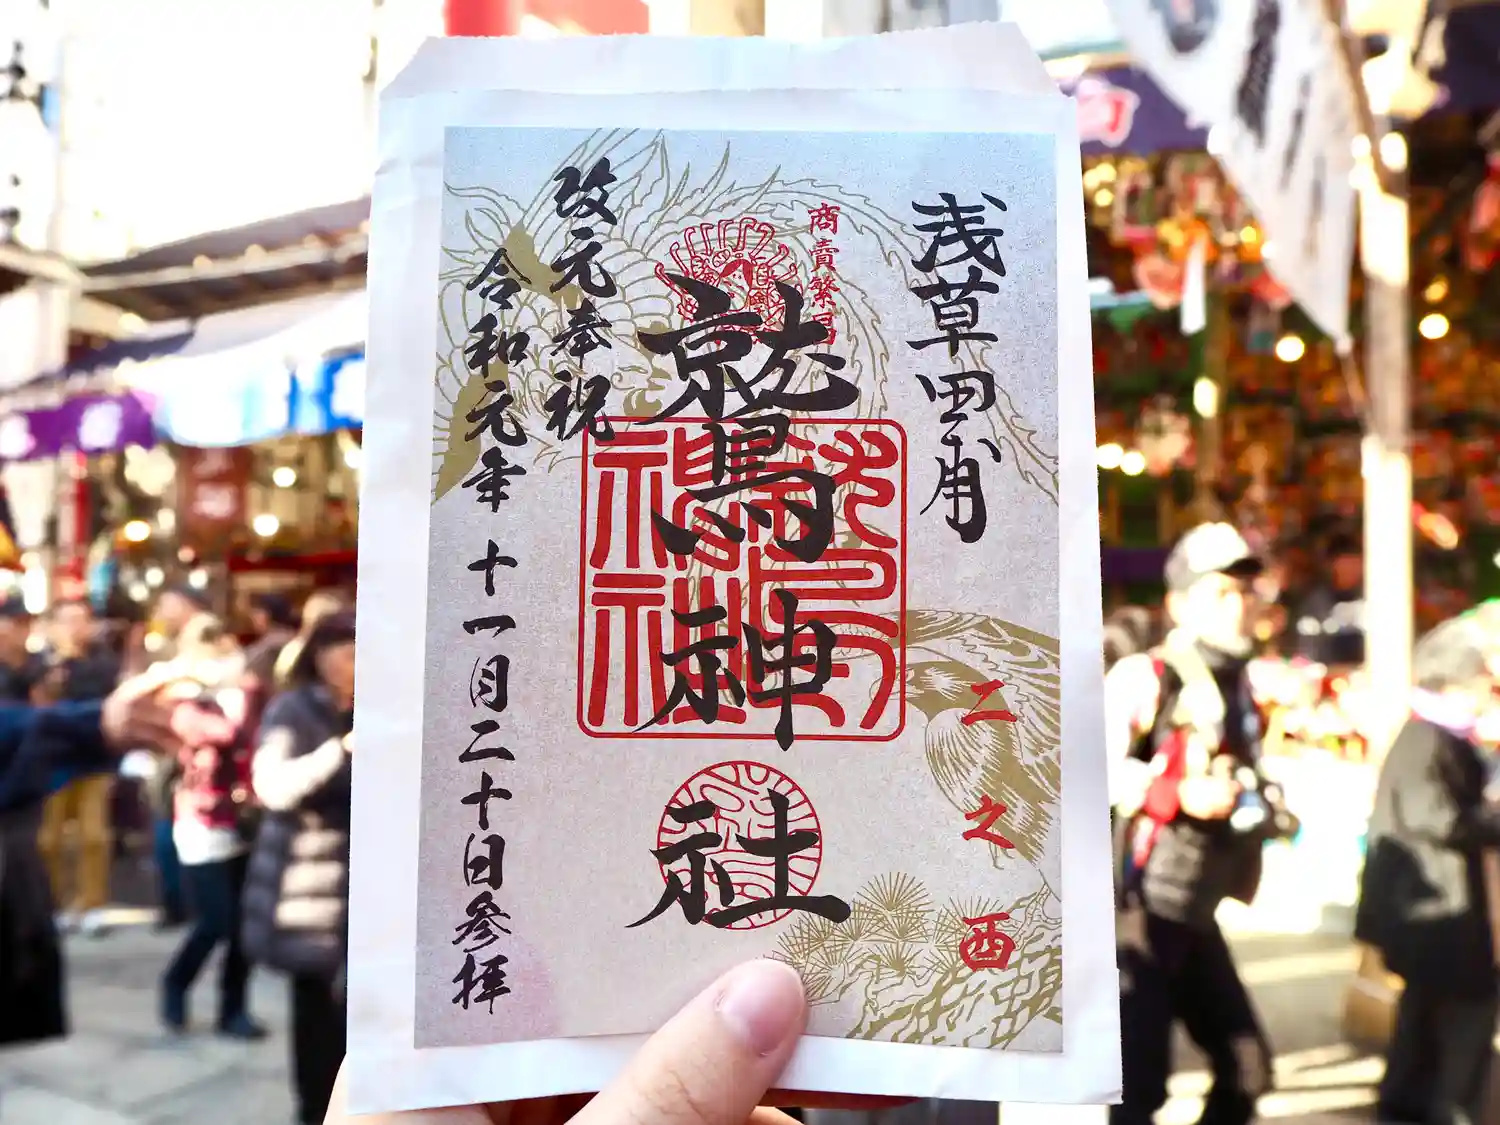 浅草田甫
二之酉
商売繁昌
鷲神社
鷲神社
改元奉祝
令和元年 十一月二十日参拝